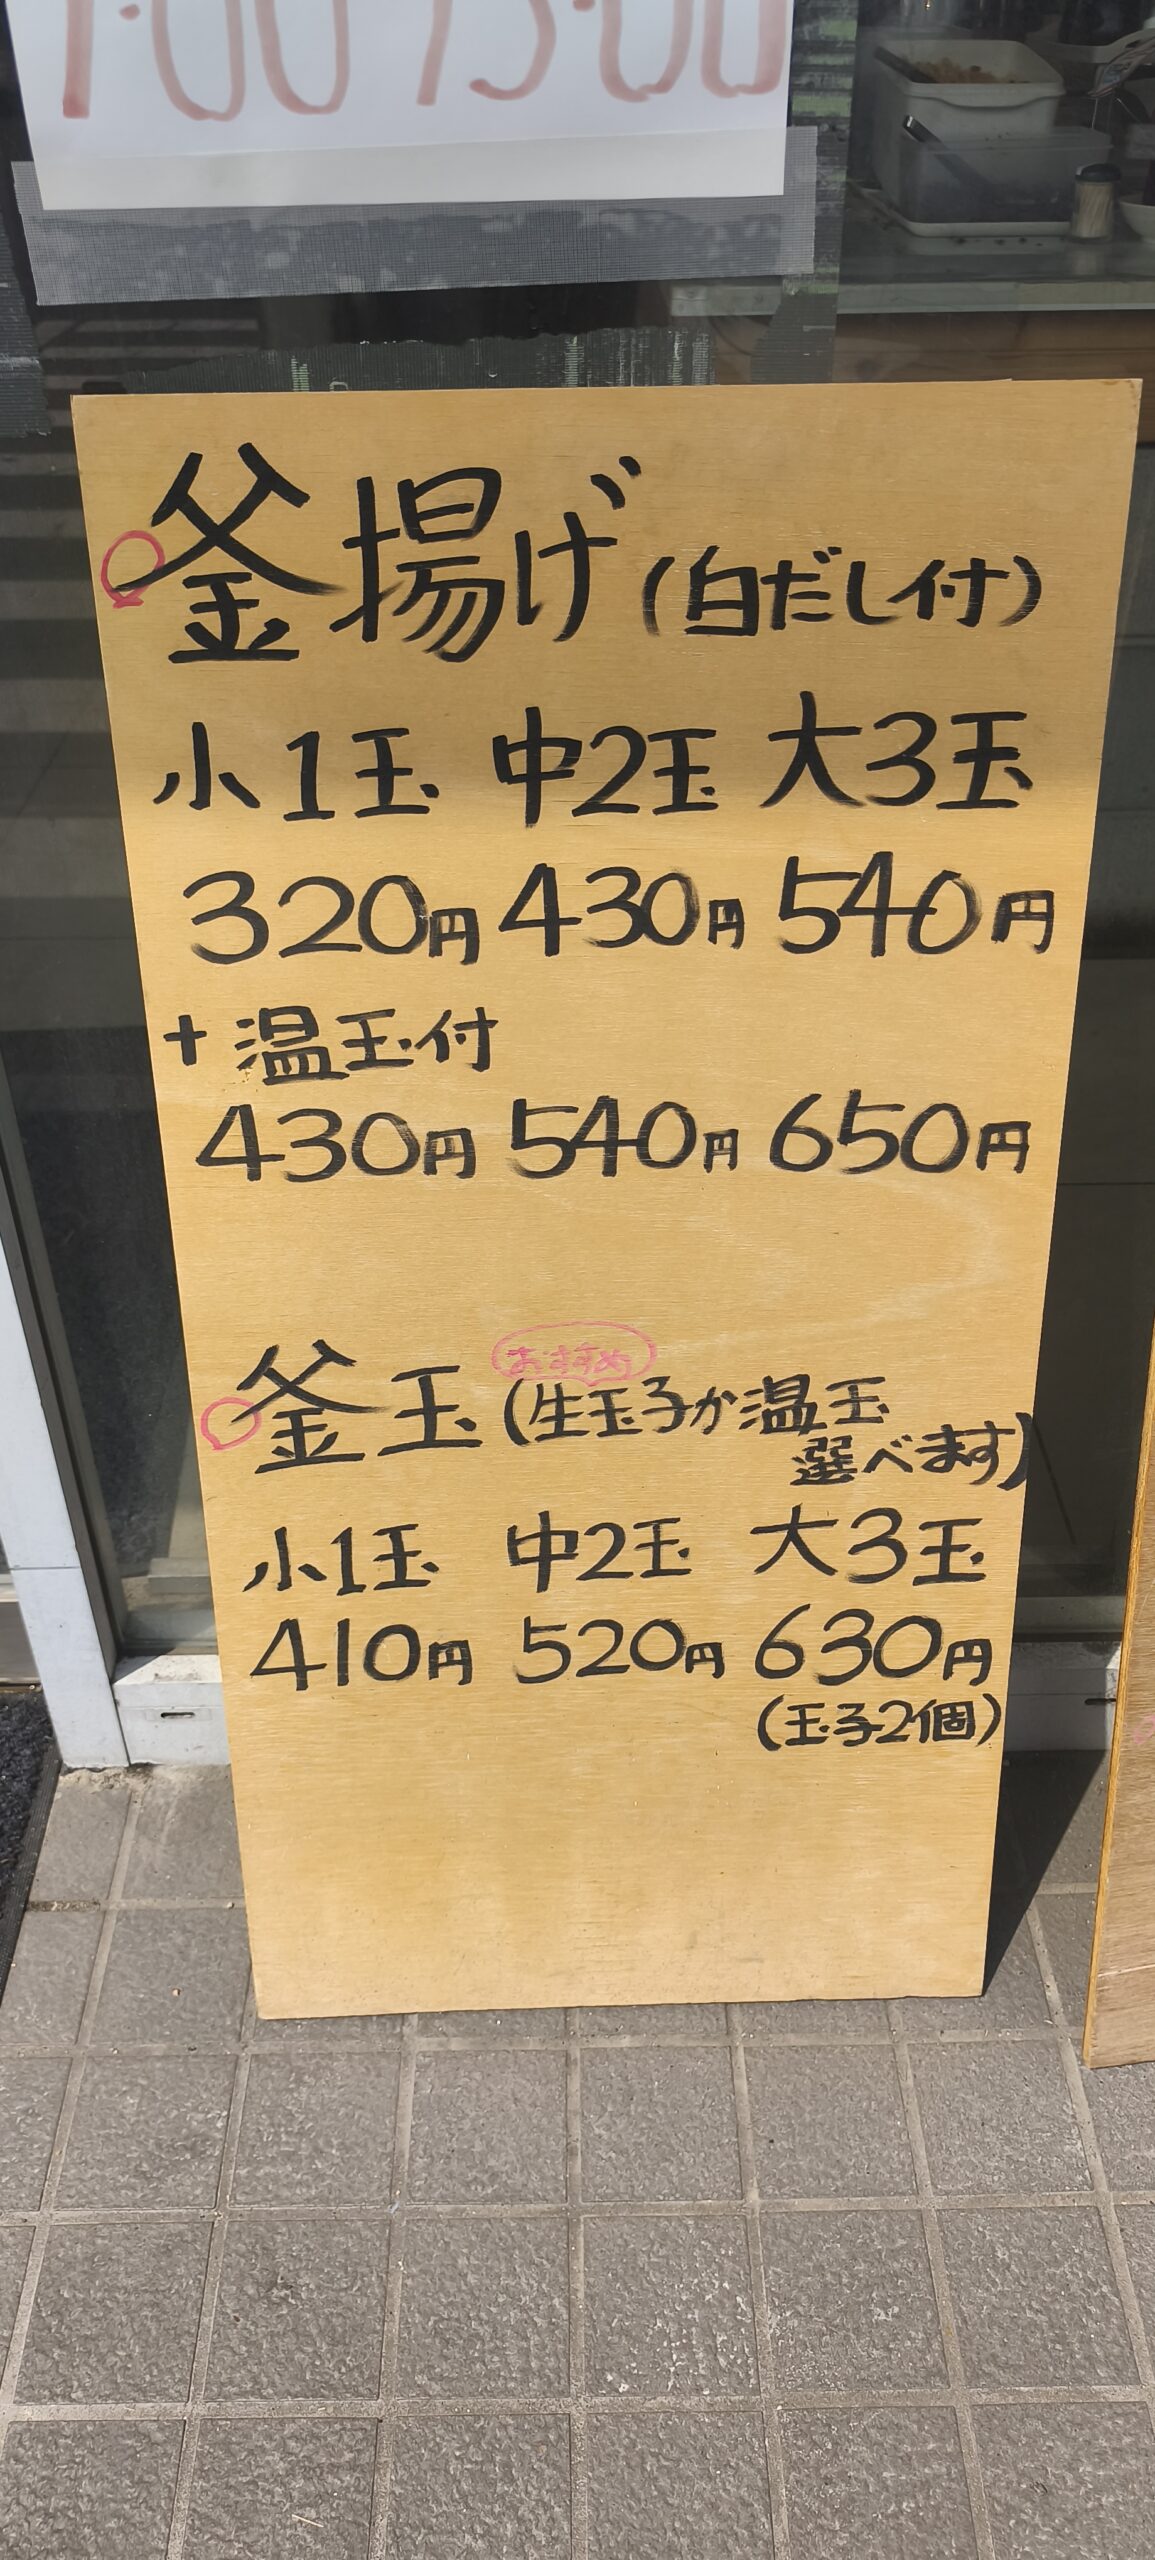 釜揚げ(白だし付)
小1玉 中2玉 大3玉
320円 430円 540円
+温玉付
430円 540円 650円
おすすめ
釜玉(生玉子か温玉
選べます)
小1玉 中2玉 大3玉
410円 520円 630円
(玉子2個)